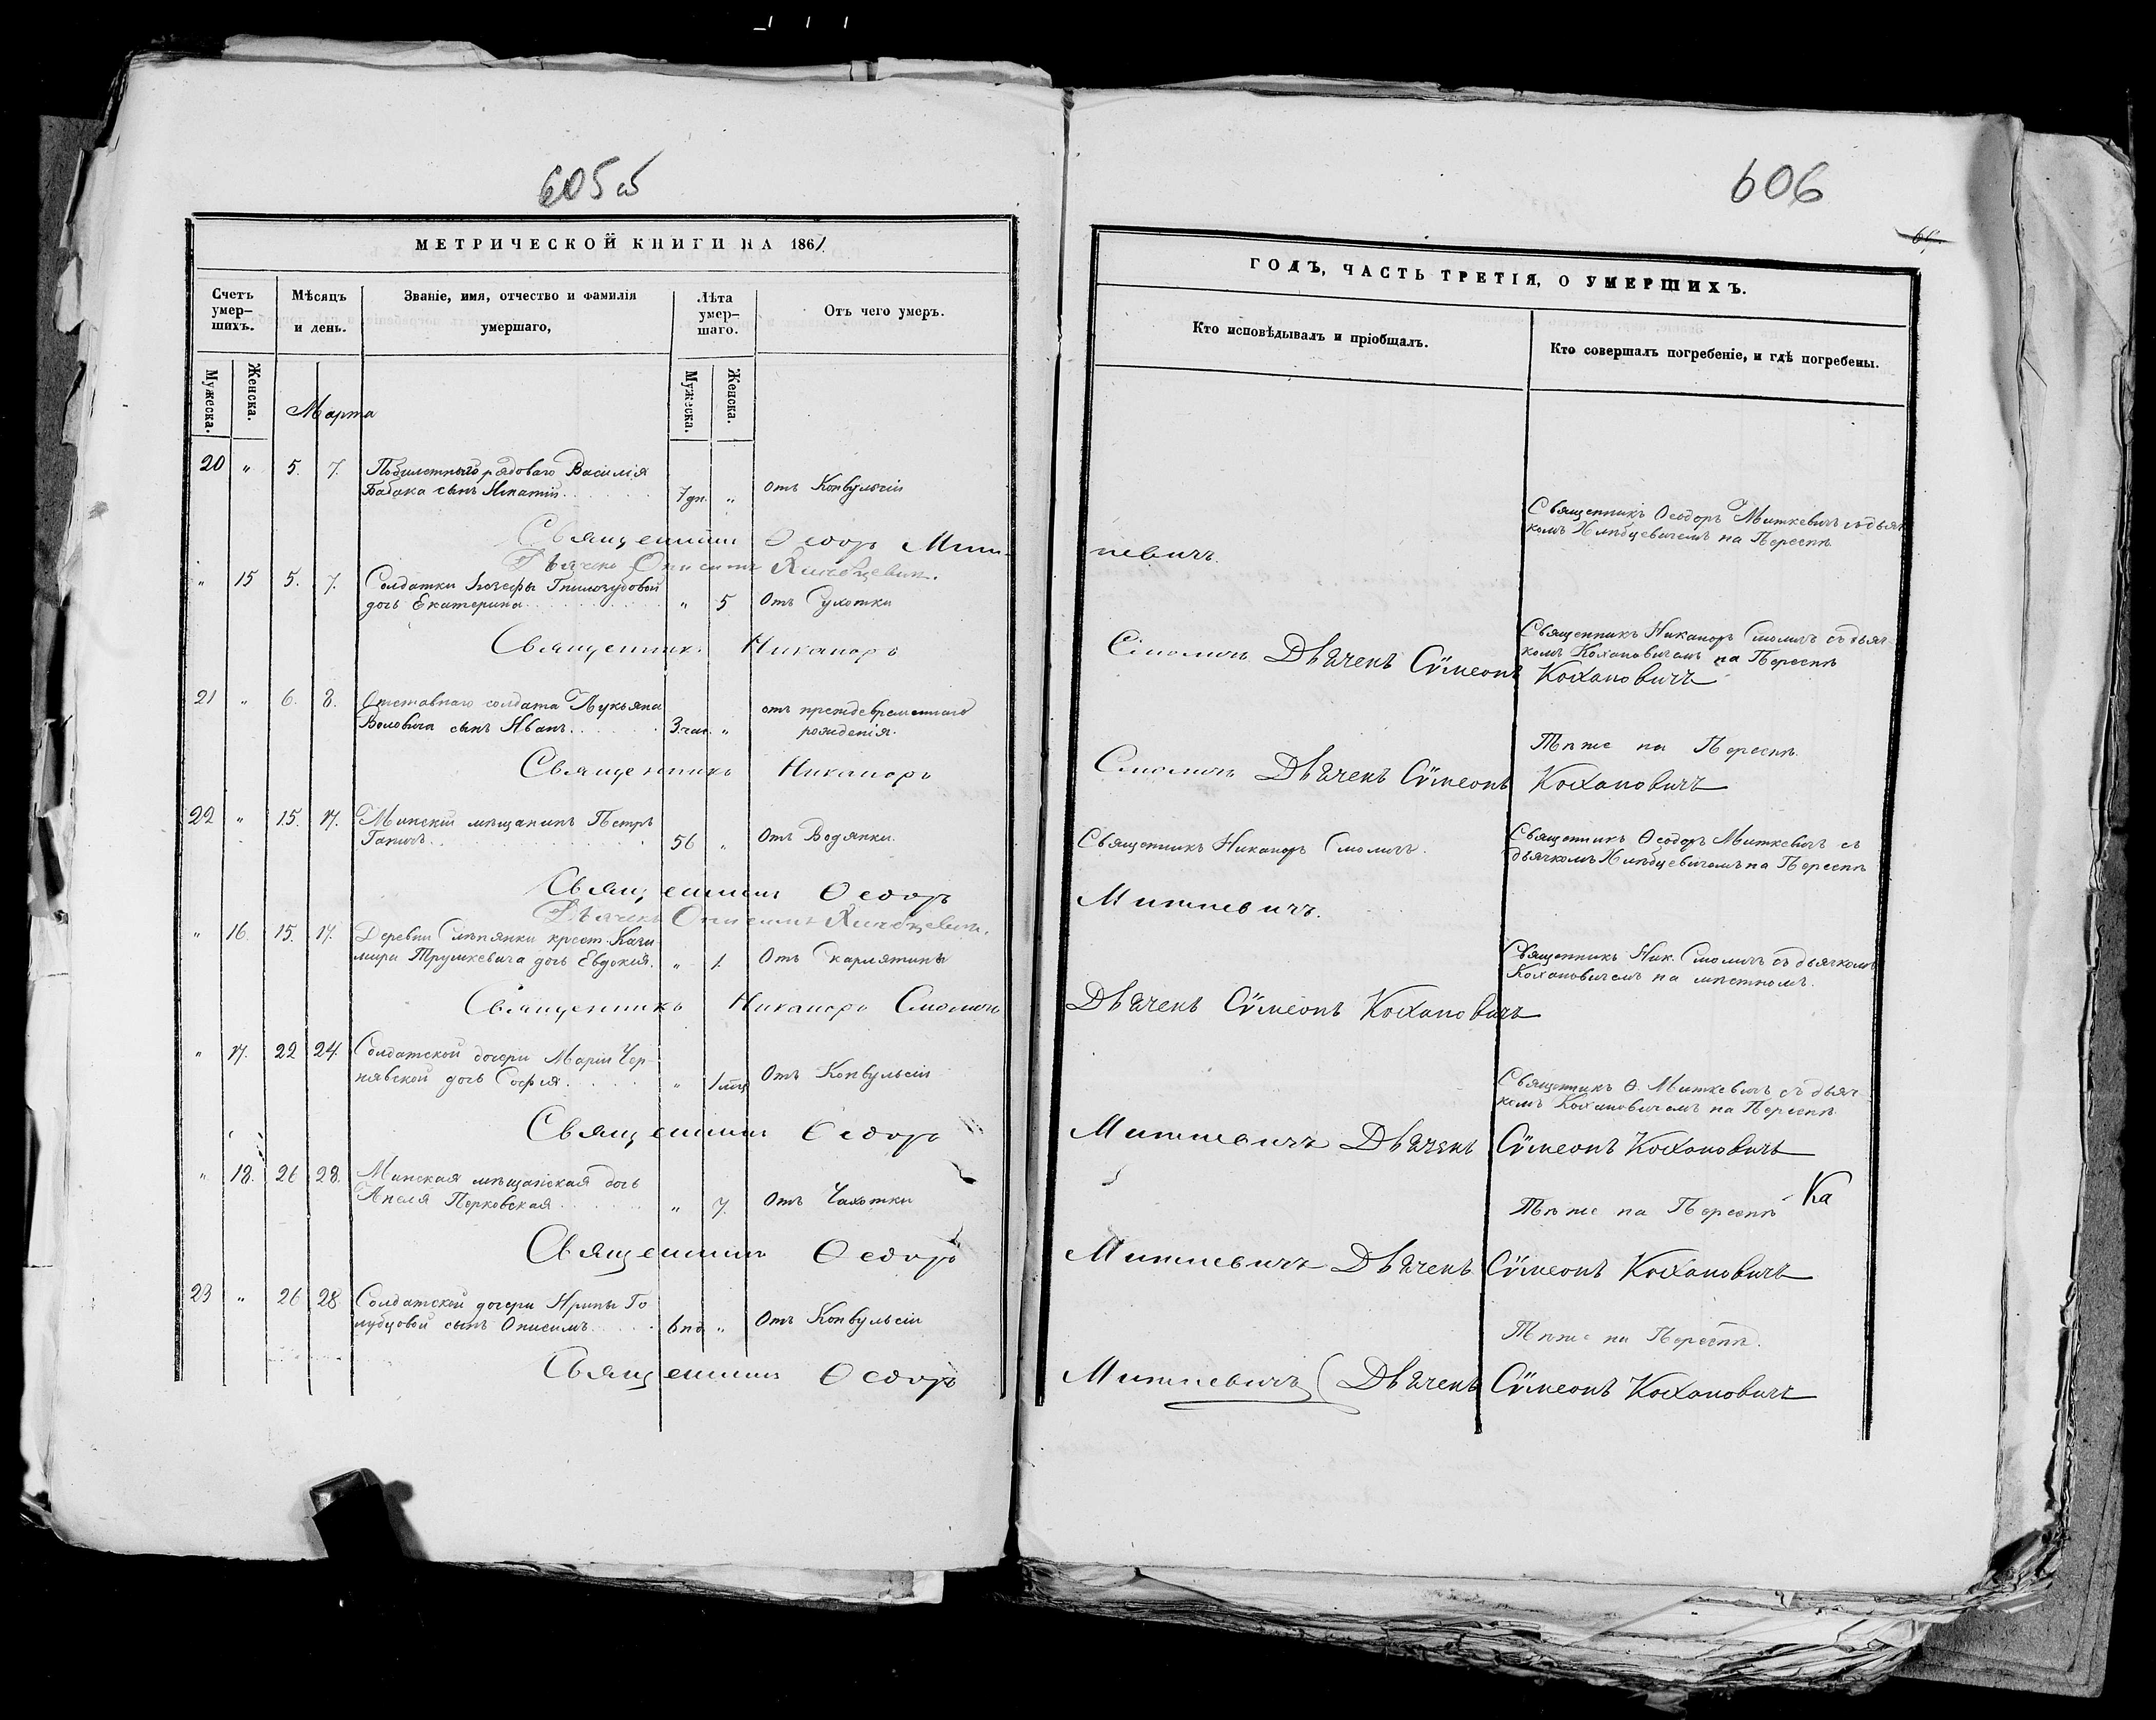 605 об
МЕТРИЧЕСКОЙ КНИГИ НА 1861
Счетъ умер-
шихъ.
Мѣсяцъ
и день.
Званіе, имя, отчество и фамилія
умершаго,
Лѣта
умер-
шаго.
Отъ чего умеръ.
Мужеска.
Женска.
Марта
Мужеска.
Женска.
20 " 5. 7. рядоваго Василія
Бабака сынъ Игнатій 7 дн. " Отъ Конвульсіи
Священникъ Ѳеодоръ Мит-
Дьячекъ Онисимъ Хлѣбцевичъ.
" 15 5. 7. Солдатки
дочь Екатерина " 5 Отъ Сухотки
Священникъ Никаноръ
21 " 6. 8. Отставнаго солдата Лукьяна
Воловича сынъ Иванъ 3 час. " отъ преждевременнаго
рожденія.
Священникъ Никаноръ
22 " 15. 17. Минскій мѣщанинъ Петръ
56 " Отъ Водянки.
Священникъ Ѳеодоръ
Дьячекъ Онисимъ Хлѣбцевичъ.
" 16. 15. 17. Деревни Слѣпянки крест. Кази-
мира Трушкевича дочь Евдокія. " 1. Отъ Скарлятины
Священникъ Никаноръ Смоличъ
" 17. 22 24. Солдатской дочери Маріи Чер-
нявской дочь Софія " 1 мѣц Отъ Конвульсіи
Священникъ Ѳеодоръ
" 18. 26 28. Минская мѣщанская дочь
Анеля Перковская " 7. Отъ Чахотки
Священникъ Ѳеодоръ
23 " 26 28 Солдатской дочери Ирины Го-
лубцовой сынъ Онисимъ 6 нд. " Отъ Конвульсіи
Священникъ Ѳеодоръ
606
ГОДЪ, ЧАСТЬ ТРЕТІЯ, О УМЕРШИХЪ.
Кто исповѣдывалъ и пріобщалъ.
Кто совершалъ погребеніе, и гдѣ погребены.
Священникъ Ѳеодоръ Миткевичъ съ дьяч-
комъ Хлѣбцевичемъ на Переспѣ
кевичъ.
Священникъ Никаноръ Смоличъ съ дьяч-
комъ Кохановичемъ на Переспѣ
Смоличъ Дьячекъ Сѵмеонъ Кохановичъ
Тѣже на Переспѣ.
Смоличъ Дьячекъ Сѵмеонъ Кохановичъ
Священникъ Никаноръ Смоличъ. Священникъ Ѳеодоръ Миткевичъ съ
дьячкомъ Хлѣбцевичемъ на Переспѣ
Миткевичъ.
Священникъ Ник. Смоличъ съ дьячкомъ
Кохановичемъ на мѣстномъ.
Дьячекъ Сѵмеонъ Кохановичъ
Священникъ Ѳ. Миткевичъ съ дьяч-
комъ Кохановичемъ на Переспѣ
Миткевичъ Дьячекъ Сѵмеонъ Кохановичъ
Тѣже на Переспѣ Ка
Миткевичъ Дьячекъ Сѵмеонъ Кохановичъ
Тѣже на Переспѣ.
Миткевичъ Дьячекъ Сѵмеонъ Кохановичъ